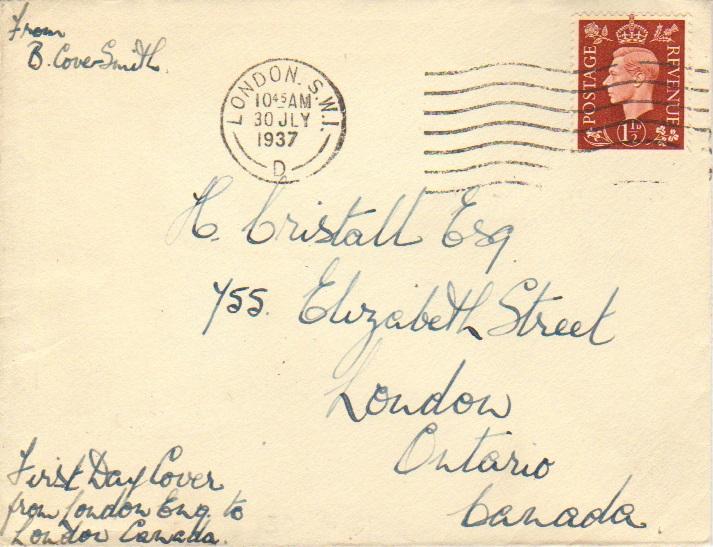 From
B. Cover-Smith.
LONDON. S.W.1.
10 45 AM
30 JLY
1937
D
POSTAGE
REVENUE
1½D
H. Cristall Esq.
755. Elizabeth Street
London
Ontario
Canada
First Day Cover
from London Eng. to
London Canada.